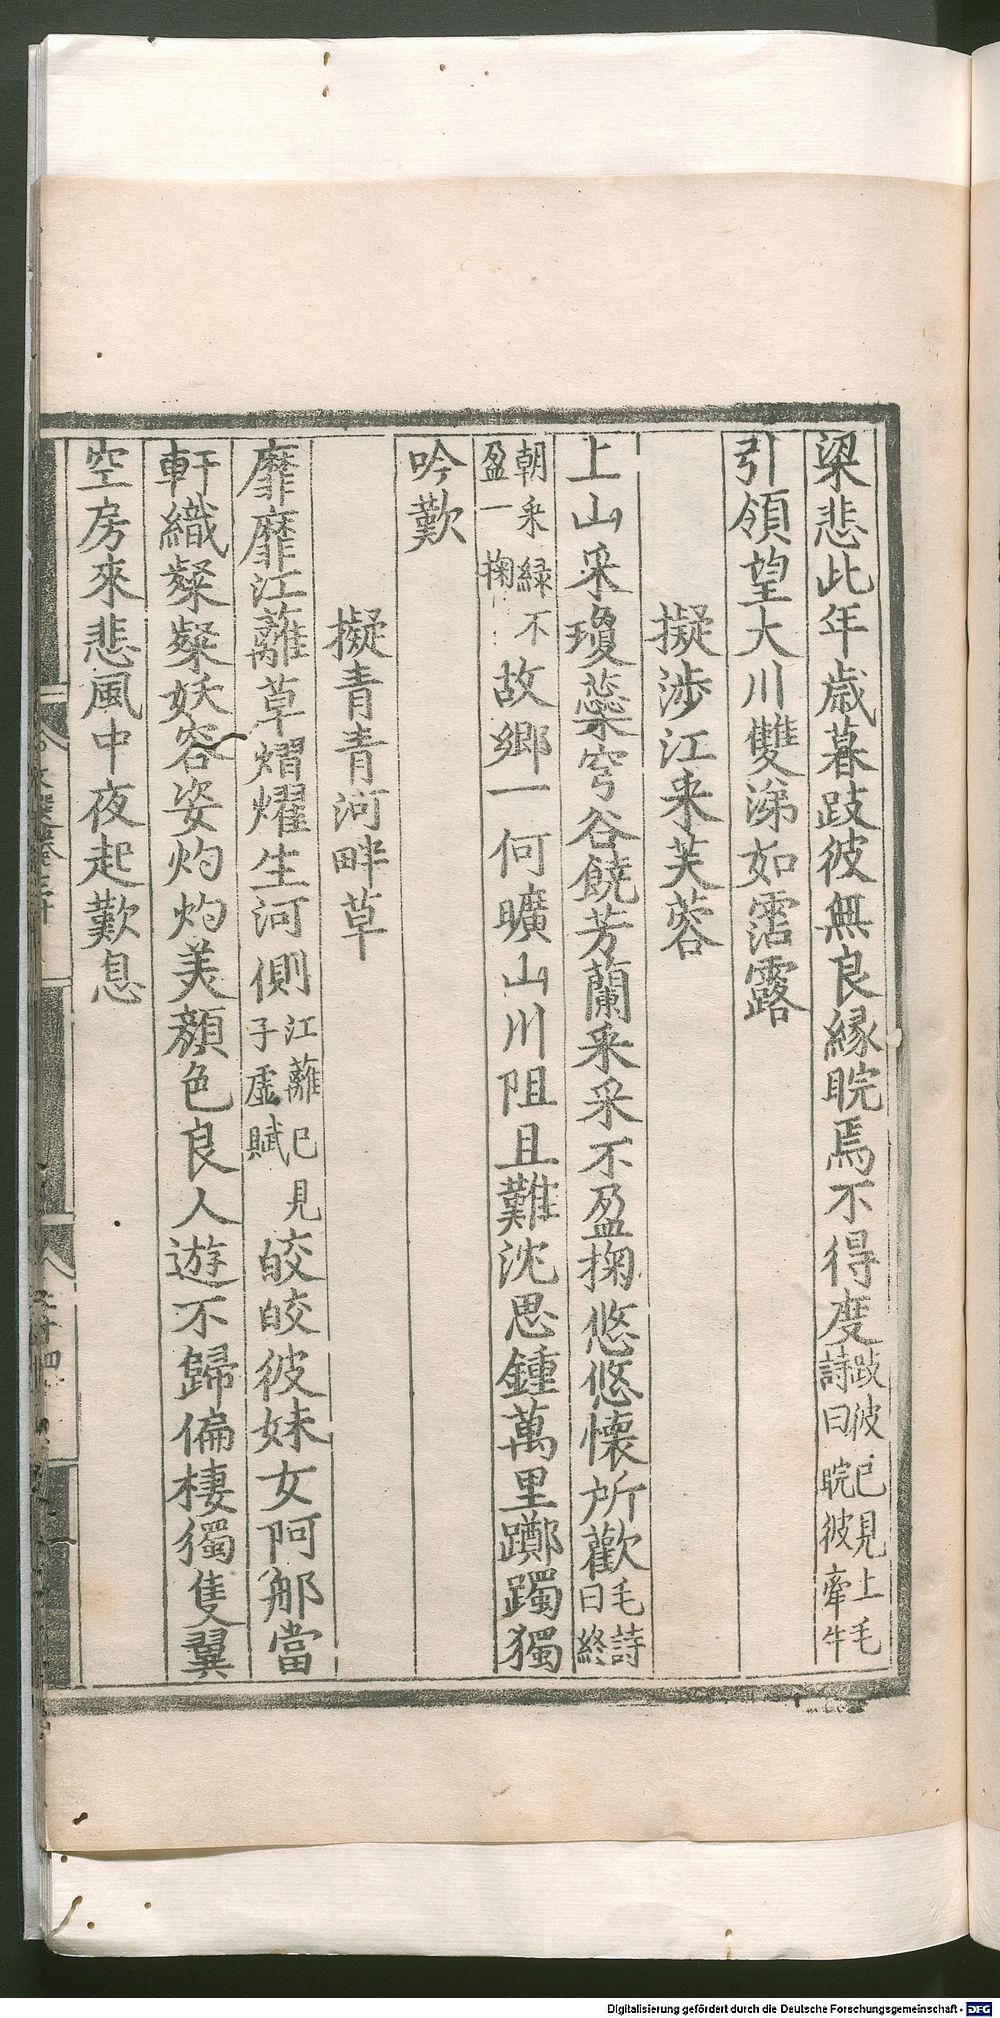 梁悲此年歲暮跂彼無良緣睆焉不得度跂彼已見上毛詩曰睆彼牽牛
引領望大川雙涕如霑露
擬涉江采芙蓉
上山采瓊蘂穹谷饒芳蘭采采不盈掬悠悠懷所歡毛詩曰終
朝采綠不盈一掬故鄉一何曠山川阻且難沈思鍾萬里躑躅獨
吟歎
擬青青河畔草
靡靡江蘺草熠燿生河側江蘺已見子虛賦皎皎彼姝女阿那當
軒織粲粲妖容姿灼灼美顏色良人遊不歸偏棲獨隻翼
空房來悲風中夜起歎息
Digitalisierung gefördert durch die Deutsche Forschungsgemeinschaft - DFG